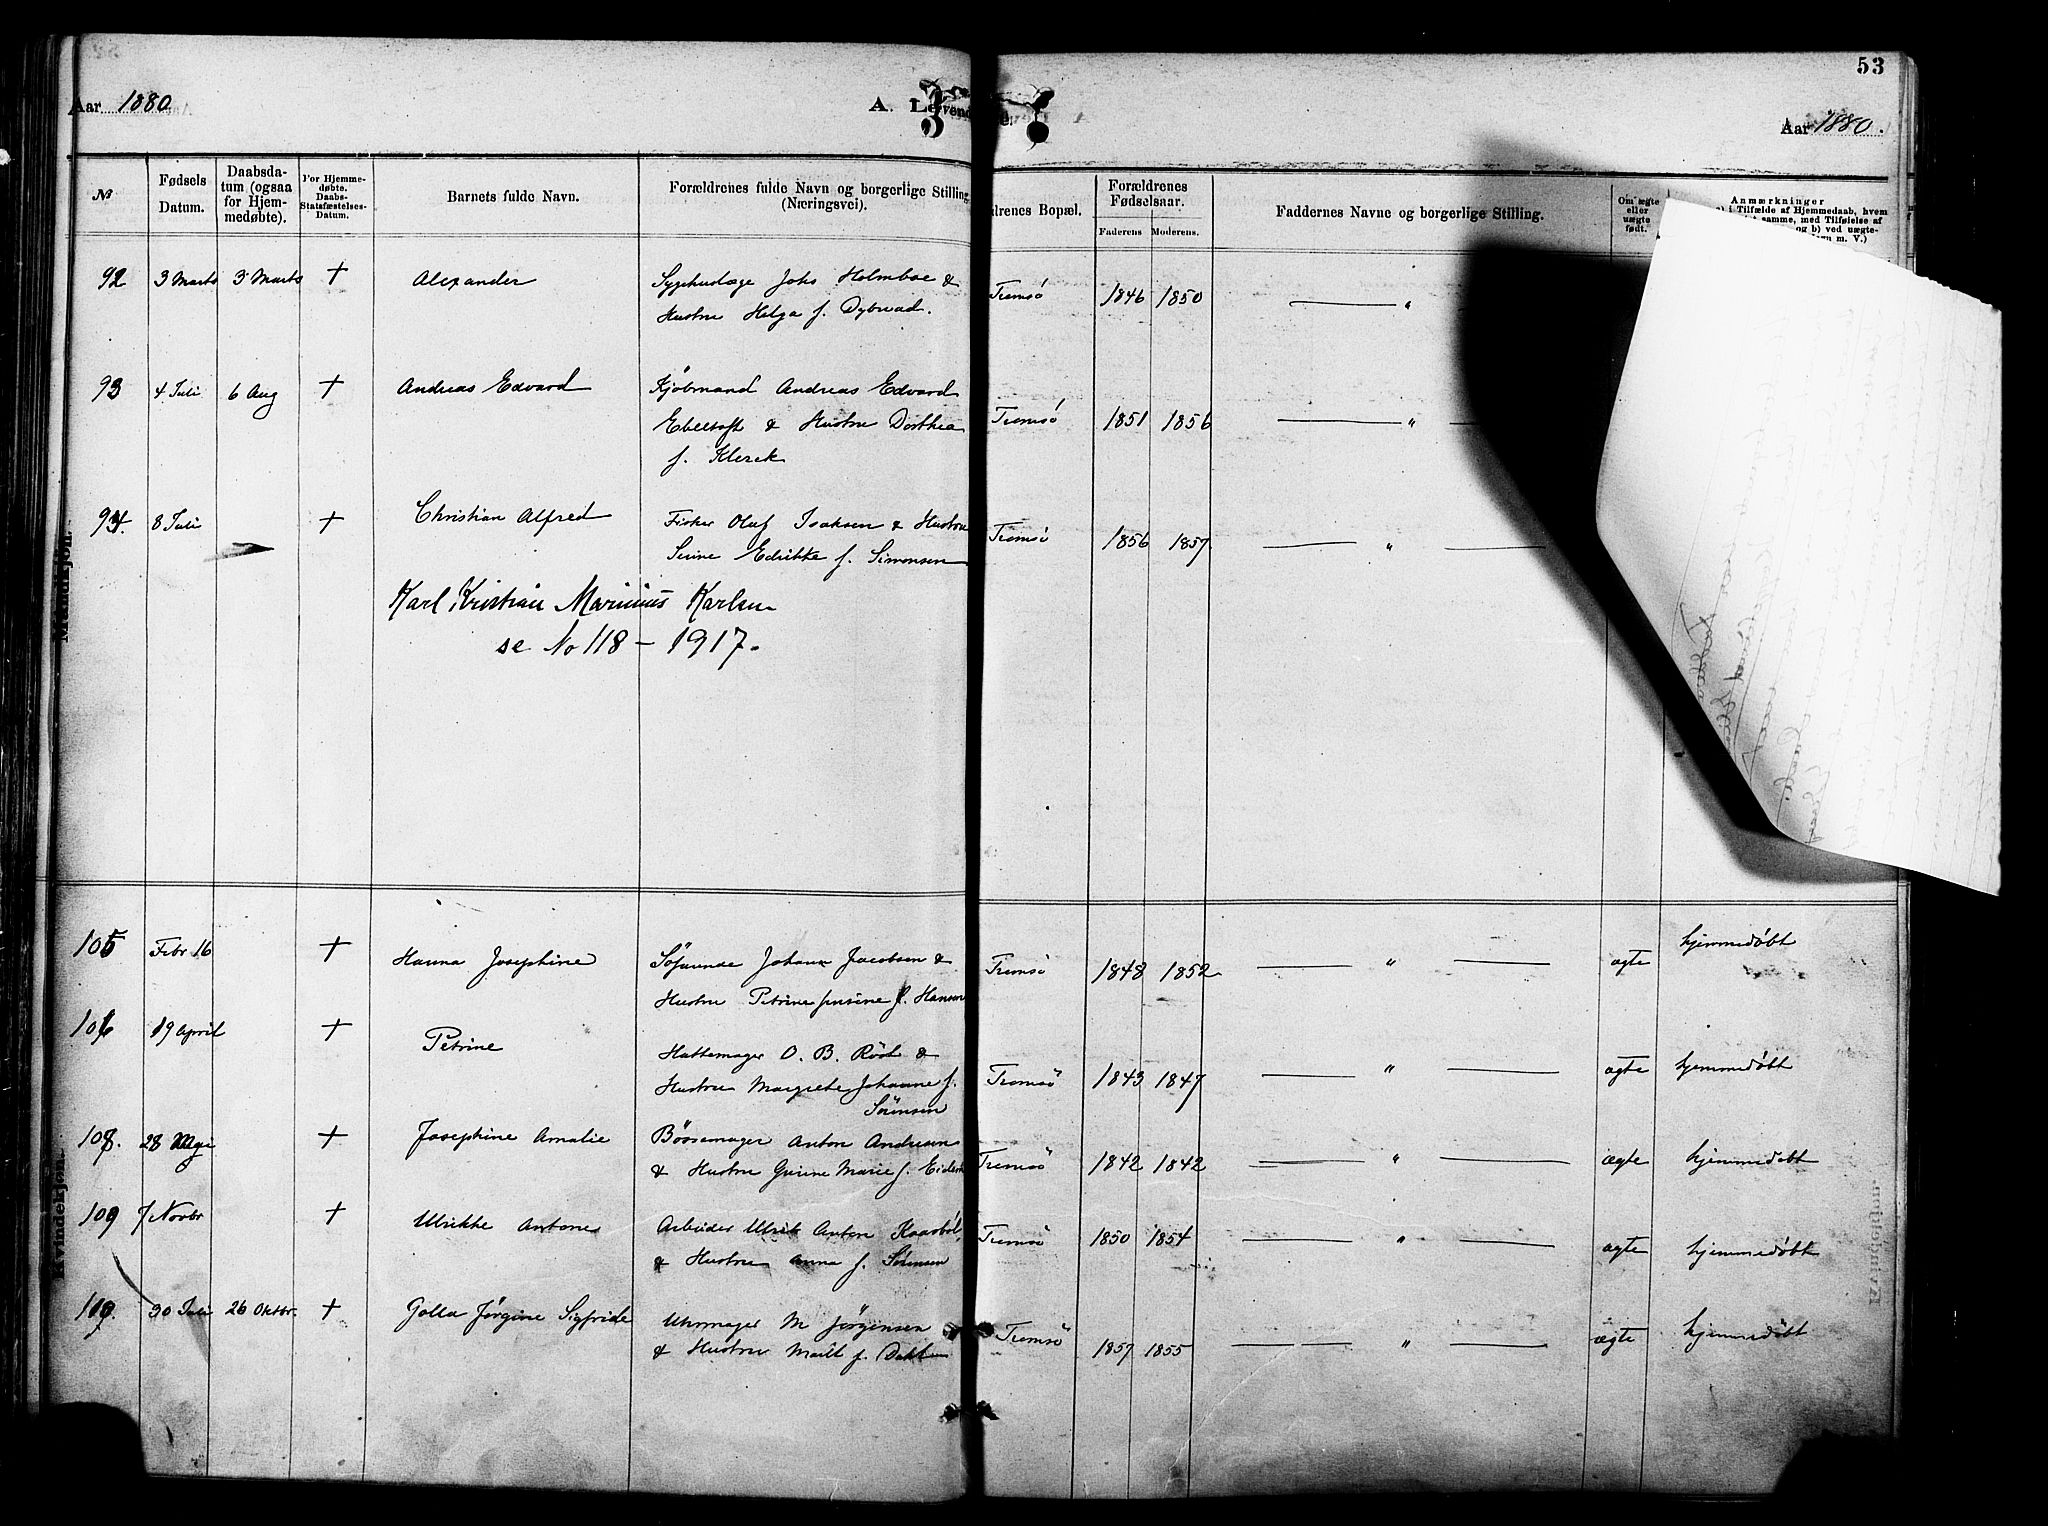 53
Aar 1880
A. Levende
Aar 1880.
№
Fødsels Datum.
Daabsdatum (ogsaa for Hjemmedøbte).
For Hjemmedøbte. Daabs-Statsfæstelses-Datum.
Barnets fulde Navn.
Forældrenes fulde Navn og borgerlige Stilling (Næringsvei).
drenes Bopæl.
Forældrenes Fødselsaar.
Faderens Moderens.
Faddernes Navne og borgerlige Stilling.
Om ægte eller uægte født.
Anmærkninger
i Tilfælde af Hjemmedaab, hvem
samme, med Tilføielse af
og b) ved uægte-
m. V.)
Mandkjøn.
92 3 Marts 3 Marts + Alexander Sygehuslæge Johs Holmboe & Tromsö 1846 1850 — " 
Hustru Helga f. Dybwad.
93 4 Juli 6 Aug + Andreas Edvard Kjöbmand Andreas Edvard
Ebeltoft & Hustru Dorthea Tromsö 1851 1856 — " —
f. Klerck
94. 8 Juli + Christian Alfred Fisker Oluf Isaksen & Hustru Tromsö 1856 1857. — " —
Serine Edrikke f. Simonsen
Karl Kristian Marinius Karlsen
se No 118 – 1917.
Kvindekjøn.
105 Febr 16 + Hanna Josephine Söfarende Johan Jacobsen & Tromsö 1848 1852 — " — ægte hjemmedøbt
Hustru Petrine f. Hansen
106 19 April + Petrine Hattemager O. B. Röst &
Hustru Margrete Johanne f. Tromsö 1843 1847 — " — ægte hjemmedøbt
Sörensen
108. 28 Mai + Josephine Amalie Bössemager Anton Andresen
& Hustru Gurine Marie f. Tromsö 1842 1842 — " — ægte hjemmedøbt
109 7 Novbr + Ulrikke Antone Arbeider Ulrik Anton Kaarbøl Tromsö 1850 1854 — " — ægte hjemmedøbt
& Hustru Anna f. Sörensen
30 Juli 26 Oktbr. + Golla Jørgine Sigfride Uhrmager M Jørgensen Tromsö 1857 1855 — " — ægte hjemmedøbt
& Hustru f. Dahl